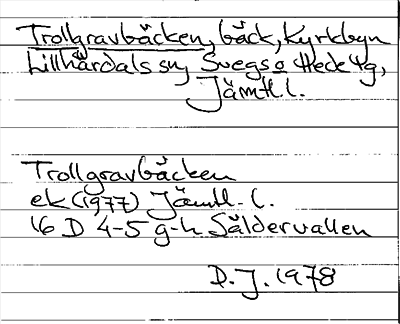 Trollgravbäcken, bäck, Kyrkbyn
Lillhärdals sn, Svegs o Hede tg,
Jämtl. l.
Trollgravbäcken
ek (1977) Jämtl. l.
16 D 4-5 g-h Säldervallen
D. J. 1978